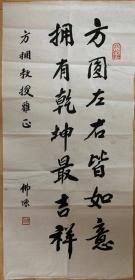 方圆左右皆如意
拥有乾坤最吉祥
方拥教授雅正